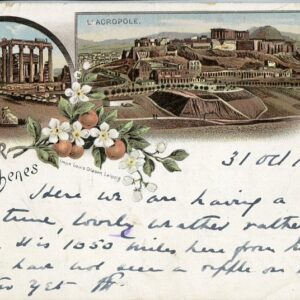 L'ACROPOLE.
Louis Glaser, Leipzig
31 Oct
Here we are having a
time, lovely weather rather
It is 1050 miles here from
have not seen a ripple on
yet